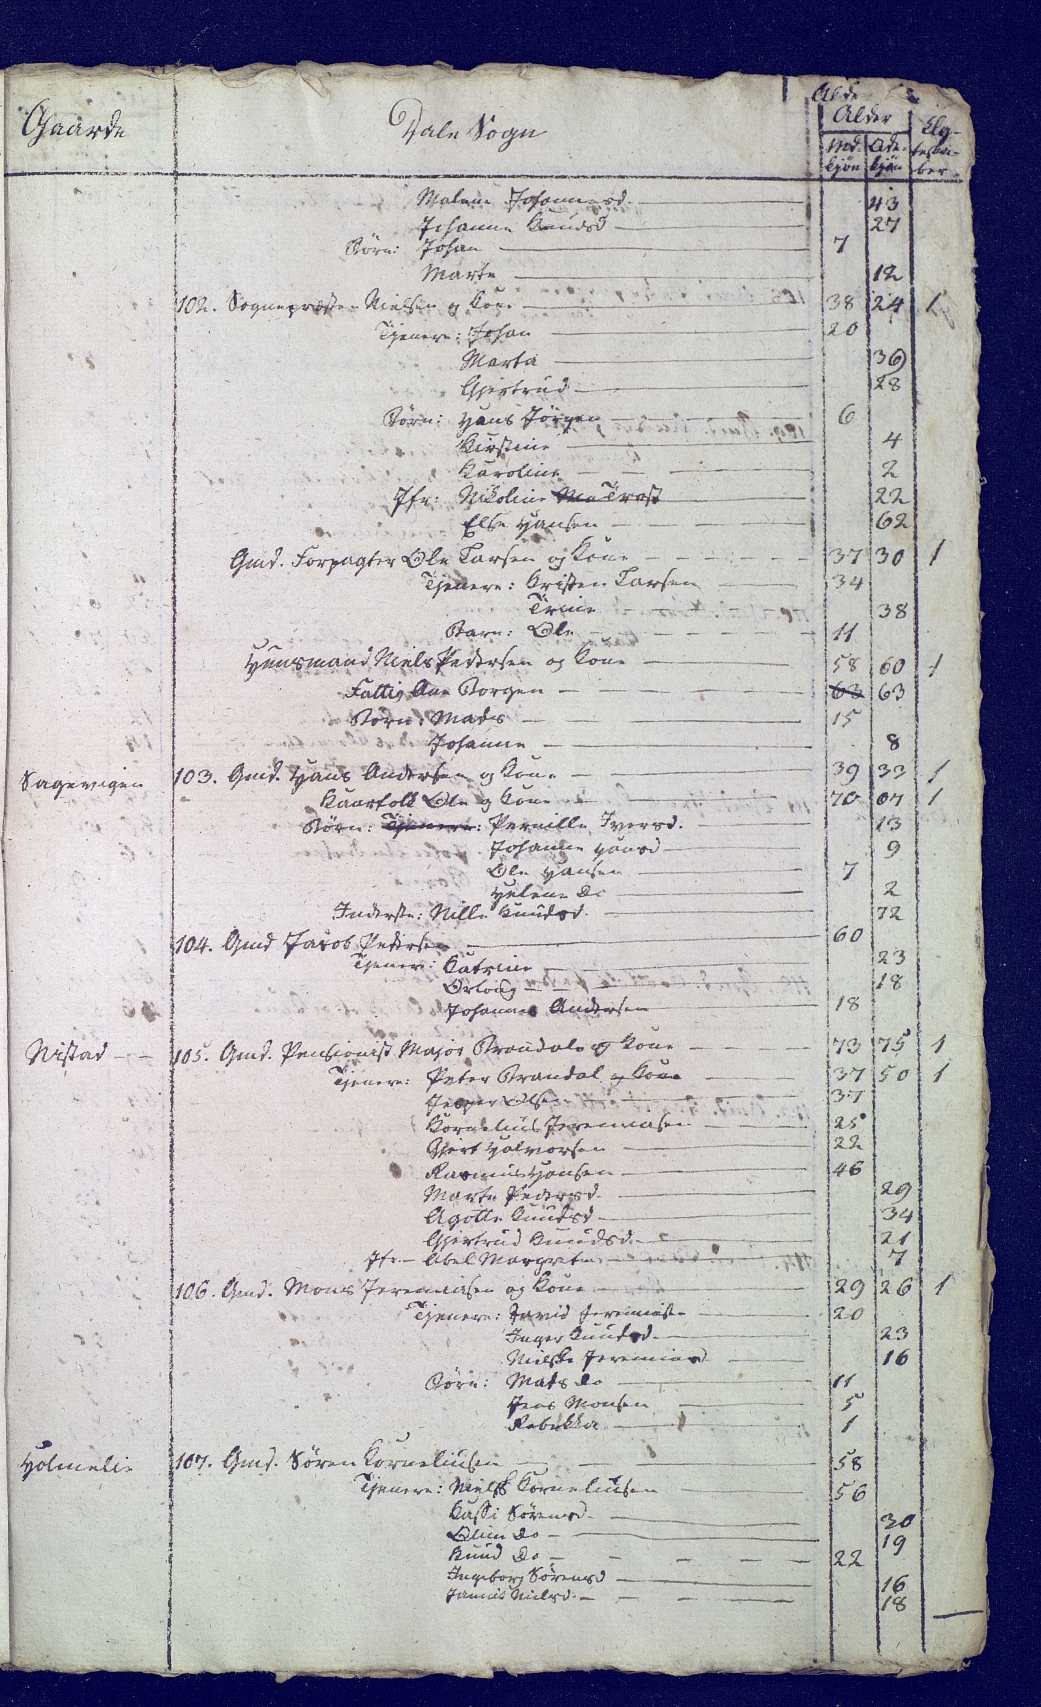 Gaarde Dale Sogn Alder Md. kjøn Qde. kjøn Ægteskaber
Malene Johannesd. 43
Johanne Knudsd 27
Børn: Johan 7
Marte 12
102. Sognepræsten Nielsen og Kone 38 24 1
Tjenere: Johan 20
Marta 36
Gjertrud 28
Børn: Hans Jørgen 6
Kirstine 4
Karoline 2
Jfr: Nikoline 22
Else Hansen 62
Gmd. Forpagter Ole Larsen og Kone 37 30 1
Tjenere: Kristen Larsen 34
Trine 38
Barn: Ole 11
Huusmand Niels Pedersen og Kone 58 60 1
Fattig Ane Borgen 63 63
Børn: Mads 15
Johanne 8
Sagevigen 103. Gmd. Hans Andersen og Kone 39 33 1
Kaarfolk Ole og Kone 70 67 1
Børn: Tjenere: Pernille Iversd. 13
Johanne Hansd 9
Ole Hansen 7
Helene Do 2
Inderste: Nille Knudsd. 72
104. Gmd Jacob Pedersen 60
Tjenere: Katrine 23
18
Johannes Andersen 18
Nistad 105. Gmd. Pensionist Major Brandal og Kone 73 75 1
Tjenere: Peter Brandal og Kone 37 50 1
Jesper Olsen 37
Kornelius Jeremiasen 25
Gjert Halvorsen 22
Rasmus Hansen 46
Marte Pedersd. 29
Agotte Knudsd 34
Gjertrud Knudsd. 21
Jfr. Abel Margrete 7
106. Gmd. Mons Jeremiasen og Kone 29 26 1
Tjenere: David Jeremiasen 20
Inger Knudsd. 23
Jeremiasd 16
Børn: Mads Do 11
Jens Monsen 5
Rebekka 1
Holmelie 107. Gmd. Søren Korneliusen 58
Tjenere: Niels Korneliusen 56
Sørensd. 30
Oline Do 19
Knud Do 22
Ingeborg Sørensd 16
Nielsd. 18